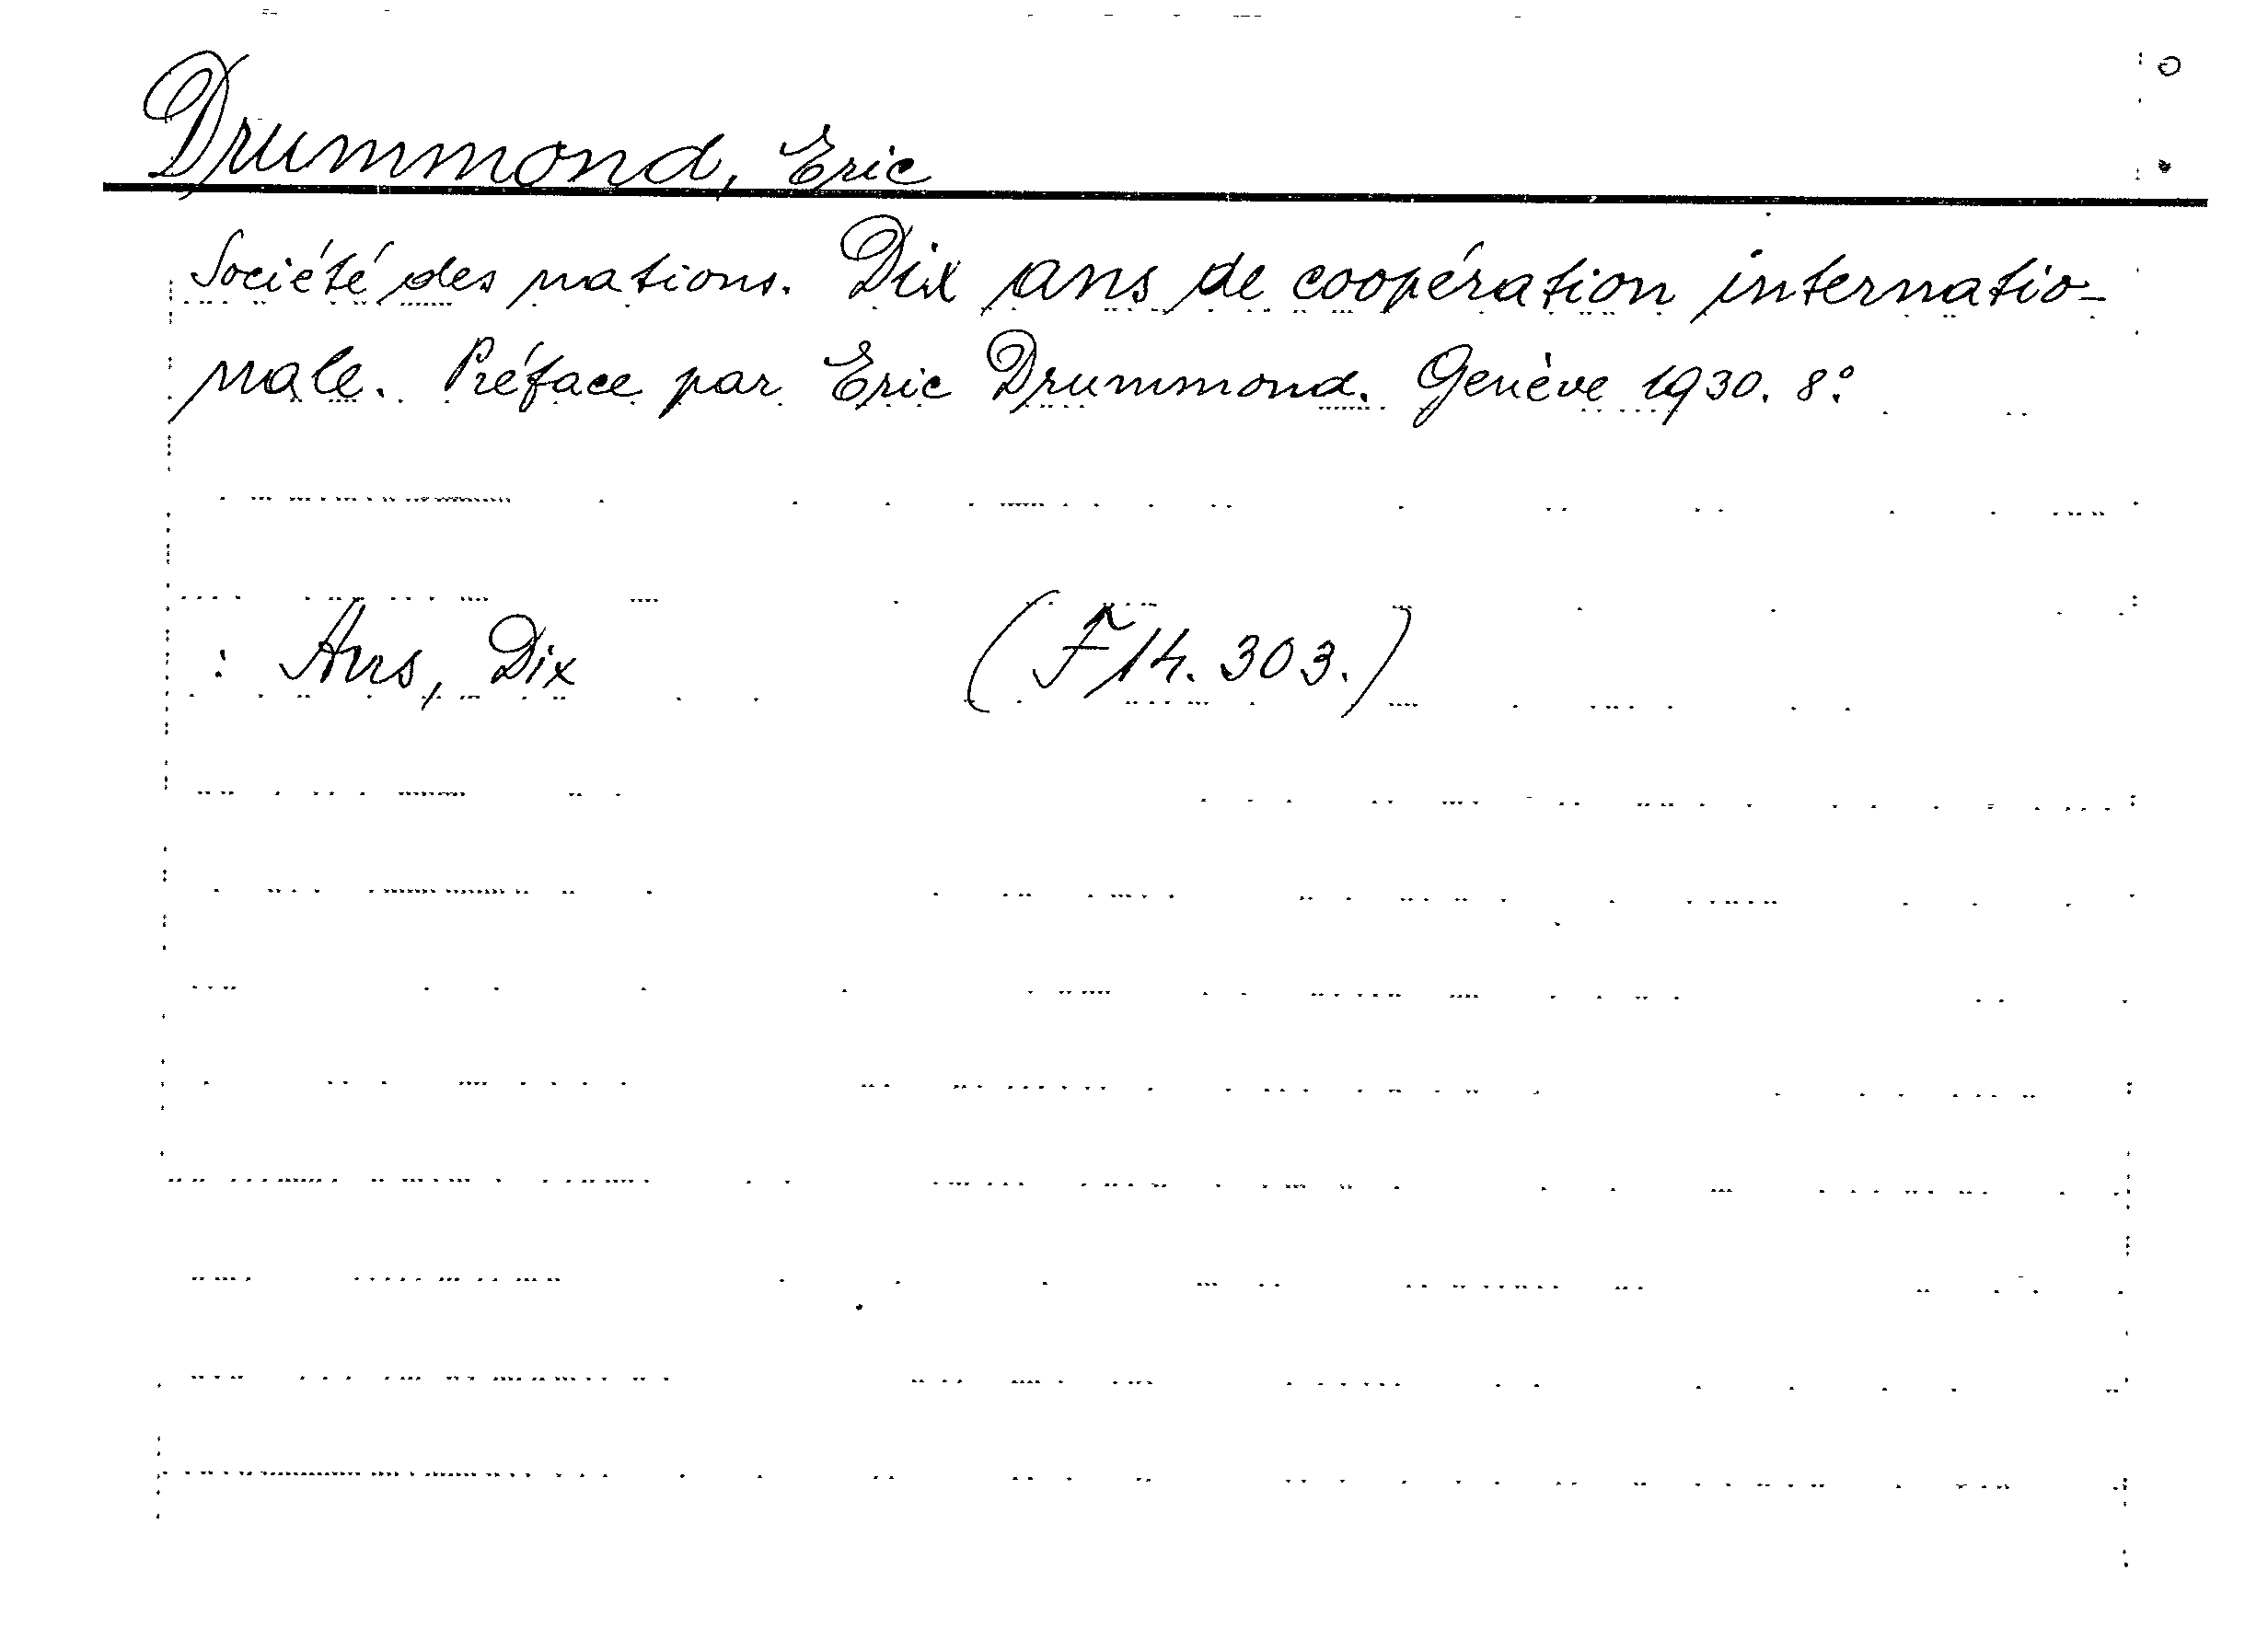 Drummond, Eric
Société des nations. Dix ans de coopération internatio-
nale. Préface par Eric Drummond. Genève 1930. 8:o
: Ans, Dix (F14. 303.)